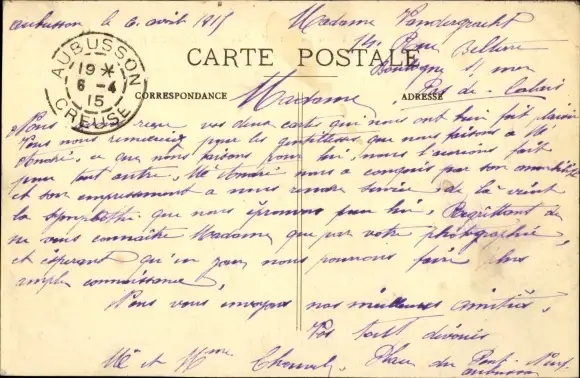 Aubusson le 6 avril 1915
Madame Vandergracht
14 Rue Belterre
Boulogne s/ mer
Pas de-Calais
CARTE POSTALE
CORRESPONDANCE
ADRESSE
AUBUSSON
19 *
6 - 4
15
CREUSE
Madame,
Nous reçu vos deux cartes qui nous ont bien fait plaisir
Vous nous remerciez pour les gentillesses que nous faisons à Mr
André, ce que nous faisons pour lui, nous l'aurions fait
pour tout autre, Mr André nous a conquis par son amabilité
et son empressement à nous rendre service de là vient
la sympathie que nous éprouvons pour lui. Regrettant de
ne vous connaître Madame que par votre photographie,
et espérant qu'un jour nous pourrons faire plus
ample connaissance,
Nous vous envoyons nos meilleures amitiés,
Vos tout dévoués
Mr et Mme Place du Pont-Neuf
Aubusson